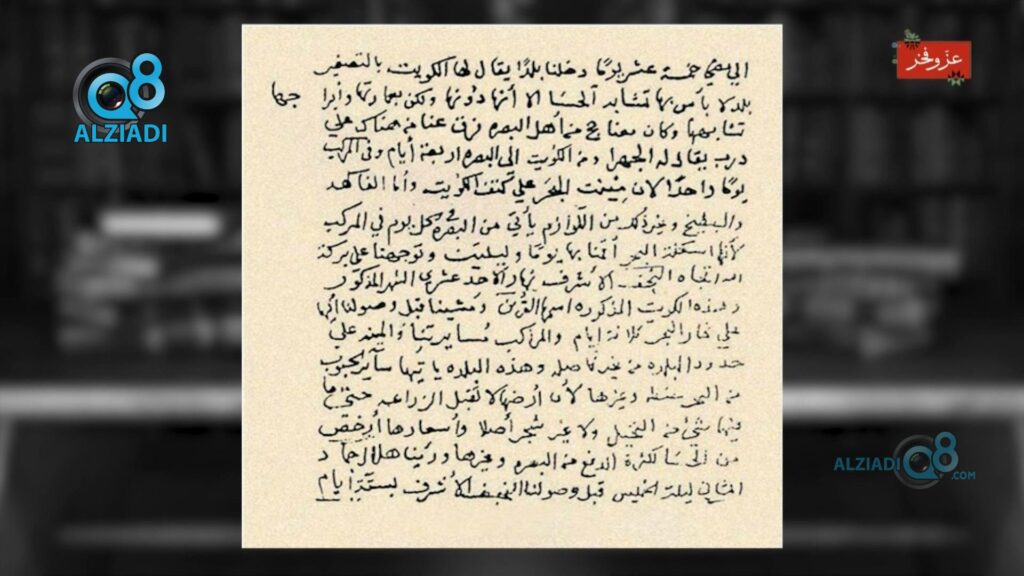 Q8
ALZIADI
عزّ وفخر
الى مضي خمسة عشر يومًا دخلنا بلدًا يقال لها الكويت بالتصغير
بلد لا بأس بها تشابه الحسا الا أنها دونها ولكن بعمارتها وأبراجها
تشابهها وكان معنا حج من أهل البصره فرق عنا من هناك على
درب يقال له الجهرا ومن الكويت الى البصره اربعة أيام وفى المركب
يومًا واحدًا لان مينت البحر على كتف الكويت وأما الفاكهه
والبطيخ وغير ذلك من اللوازم يأتي من البصره كل يوم في المركب
لأنها اسكلة البحر أقمنا بها يومًا وليلتين وتوجهنا على بركة
الله اتجاه النجف الأشرف نهار الأحد عشرى الشهر المذكور
وهذه الكويت المذكوره اسمها القرين ومشينا قبل وصولنا إليها
على كنار البحر ثلاثة ايام والمراكب مسايرتنا والمينه على
حدود البلده من غير فاصله وهذه البلده يأتيها ساير الحبوب
من البحر حنطه وغيرها لأن أرضها لا تقبل الزراعه حتى ما
فيها شيء من النخيل ولا غير شجر أصلا وأسعارها أرخص
من الحسا لكثرة الدفع من البصره وغيرها ورئينا هلال جماد
الثاني ليلة الخميس قبل وصولنا النجف الأشرف بستة أيام
ALZIADI Q8 .COM